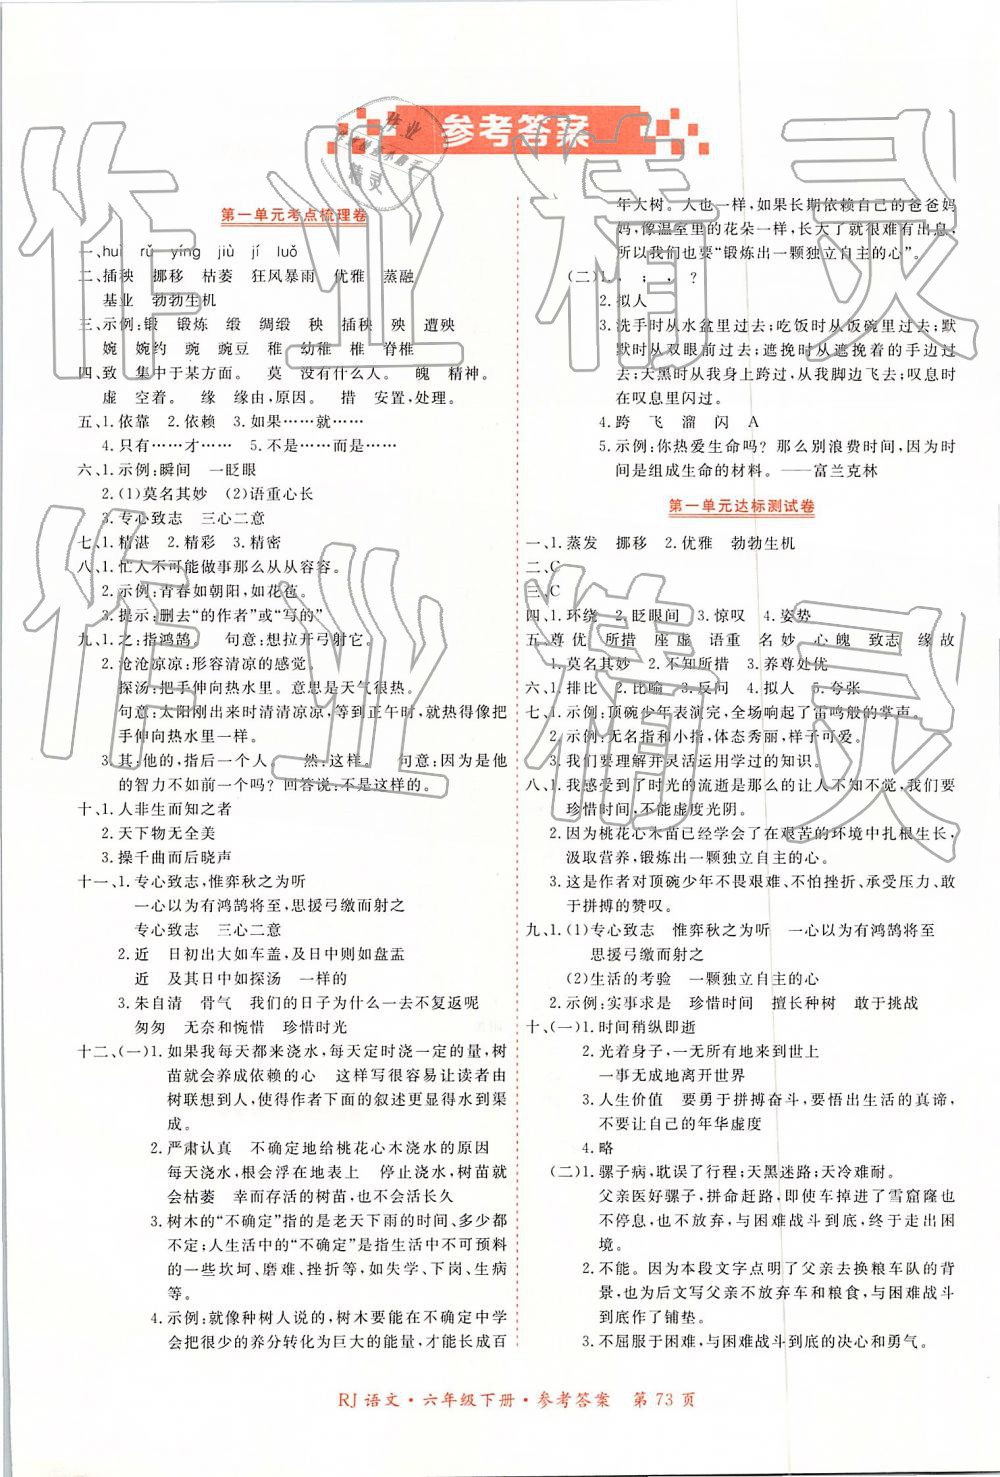 参考答案
第一单元考点梳理卷
一、huì rǔ yíng jiù jí luǒ
二、插秧 挪移 枯萎 狂风暴雨 优雅 蒸融
基业 勃勃生机
三、示例:锻 锻炼 缎 绸缎 秧 插秧 殃 遭殃
婉 婉约 豌 豌豆 稚 幼稚 椎 脊椎
四、致 集中于某方面。 莫 没有什么人。 魄 精神。
虚 空着。 缘 缘由,原因。 措 安置,处理。
五、1.依靠 2.依赖 3.如果……就……
4.只有……才…… 5.不是……而是……
六、1.示例:瞬间 一眨眼
2.(1)莫名其妙 (2)语重心长
3.专心致志 三心二意
七、1.精湛 2.精彩 3.精密
八、1.忙人不可能做事那么从从容容。
2.示例:青春如朝阳,如花苞。
3.提示:删去“的作者”或“写的”
九、1.之:指鸿鹄。 句意:想拉开弓射它。
2.沧沧凉凉:形容清凉的感觉。
探汤:把手伸向热水里。意思是天气很热。
句意:太阳刚出来时清清凉凉,等到正午时,就热得像把
手伸向热水里一样。
3.其:他的,指后一个人。 然:这样。 句意:因为是他
的智力不如前一个吗?回答说:不是这样的。
十、1.人非生而知之者
2.天下物无全美
3.操千曲而后晓声
十一、1.专心致志,惟弈秋之为听
一心以为有鸿鹄将至,思援弓缴而射之
专心致志 三心二意
2.近 日初出大如车盖,及日中则如盘盂
近 及其日中如探汤 一样的
3.朱自清 骨气 我们的日子为什么一去不复返呢
匆匆 无奈和惋惜 珍惜时光
十二、(一)1.如果我每天都来浇水,每天定时浇一定的量,树
苗就会养成依赖的心 这样写很容易让读者由
树联想到人,使得作者下面的叙述更显得水到渠
成。
2.严肃认真 不确定地给桃花心木浇水的原因
每天浇水,根会浮在地表上 停止浇水,树苗就
会枯萎 幸而存活的树苗,也不可能活长久
3.树木的“不确定”指的是老天下雨的时间、多少都
不定;人生活中的“不确定”是指生活中不可预料
的一些坎坷、磨难、挫折等,如失学、下岗、生病
等。
4.示例:就像种树人说的,树木要能在不确定中学
会把很少的养分转化为巨大的能量,才能长成百
年大树。人也一样,如果长期依赖自己的爸爸妈
妈,像温室里的花朵一样,长大了就很难有出息,
所以我们也要“锻炼出一颗独立自主的心”。
(二)1., ; , ?
2.拟人
3.洗手时从水盆里过去;吃饭时从饭碗里过去;默
默时从双眼前过去;遮挽时从遮挽着的手边过
去;天黑时从身上跨过,从脚边飞去;叹息时
在叹息里闪过。
4.跨 飞 溜 闪 A
5.示例:你热爱生命吗?那么别浪费时间,因为时
间是组成生命的材料。——富兰克林
第一单元达标测试卷
一、1.蒸发 挪移 2.优雅 勃勃生机
二、C
三、C
四、1.环绕 2.眨眼间 3.惊叹 4.姿势
五、尊 优 所 措 座 虚 语 重 名 妙 心 魄 致 志 缘 故
1.莫名其妙 2.不知所措 3.养尊处优
六、1.排比 2.比喻 3.反问 4.拟人 5.夸张
七、1.示例:顶碗少年表演完,全场响起了雷鸣般的掌声。
2.示例:无名指和小指,体态秀丽,样子可爱。
3.我们要理解并灵活运用学过的知识。
八、1.我感受到了时光的流逝是那么的让人不知不觉,我们要
珍惜时间,不能虚度光阴。
2.因为桃花心木苗已经学会了在艰苦的环境中扎根生长,
汲取营养,锻炼出一颗独立自主的心。
3.这是作者对顶碗少年不畏艰难、不怕挫折、承受压力、敢
于拼搏的赞叹。
九、1.(1)专心致志 惟弈秋之为听 一心以为有鸿鹄将至
思援弓缴而射之
(2)生活的考验 一颗独立自主的心
2.示例:实事求是 珍惜时间 擅长种树 敢于挑战
十、(一)1.时间稍纵即逝
2.光着身子,一无所有地来到世上
一事无成地离开世界
3.人生价值 要勇于拼搏奋斗,要悟出生活的真谛,
不要让自己的年华虚度
4.略
(二)1.骡子病,耽误了行程;天黑迷路;天冷难耐。
父亲医好骡子,拼命赶路,即使车掉进了雪窟窿也
不停息,也不放弃,与困难战斗到底,终于走出困
境。
2.不能。因为本段文字点明了父亲去换粮车队的背
景,也为后文写父亲不放弃车和粮食,与困难战斗
到底作了铺垫。
3.不屈服于困难,与困难战斗到底的决心和勇气。
RJ 语文·六年级下册·参考答案 第 73 页
作业精灵
作业精灵